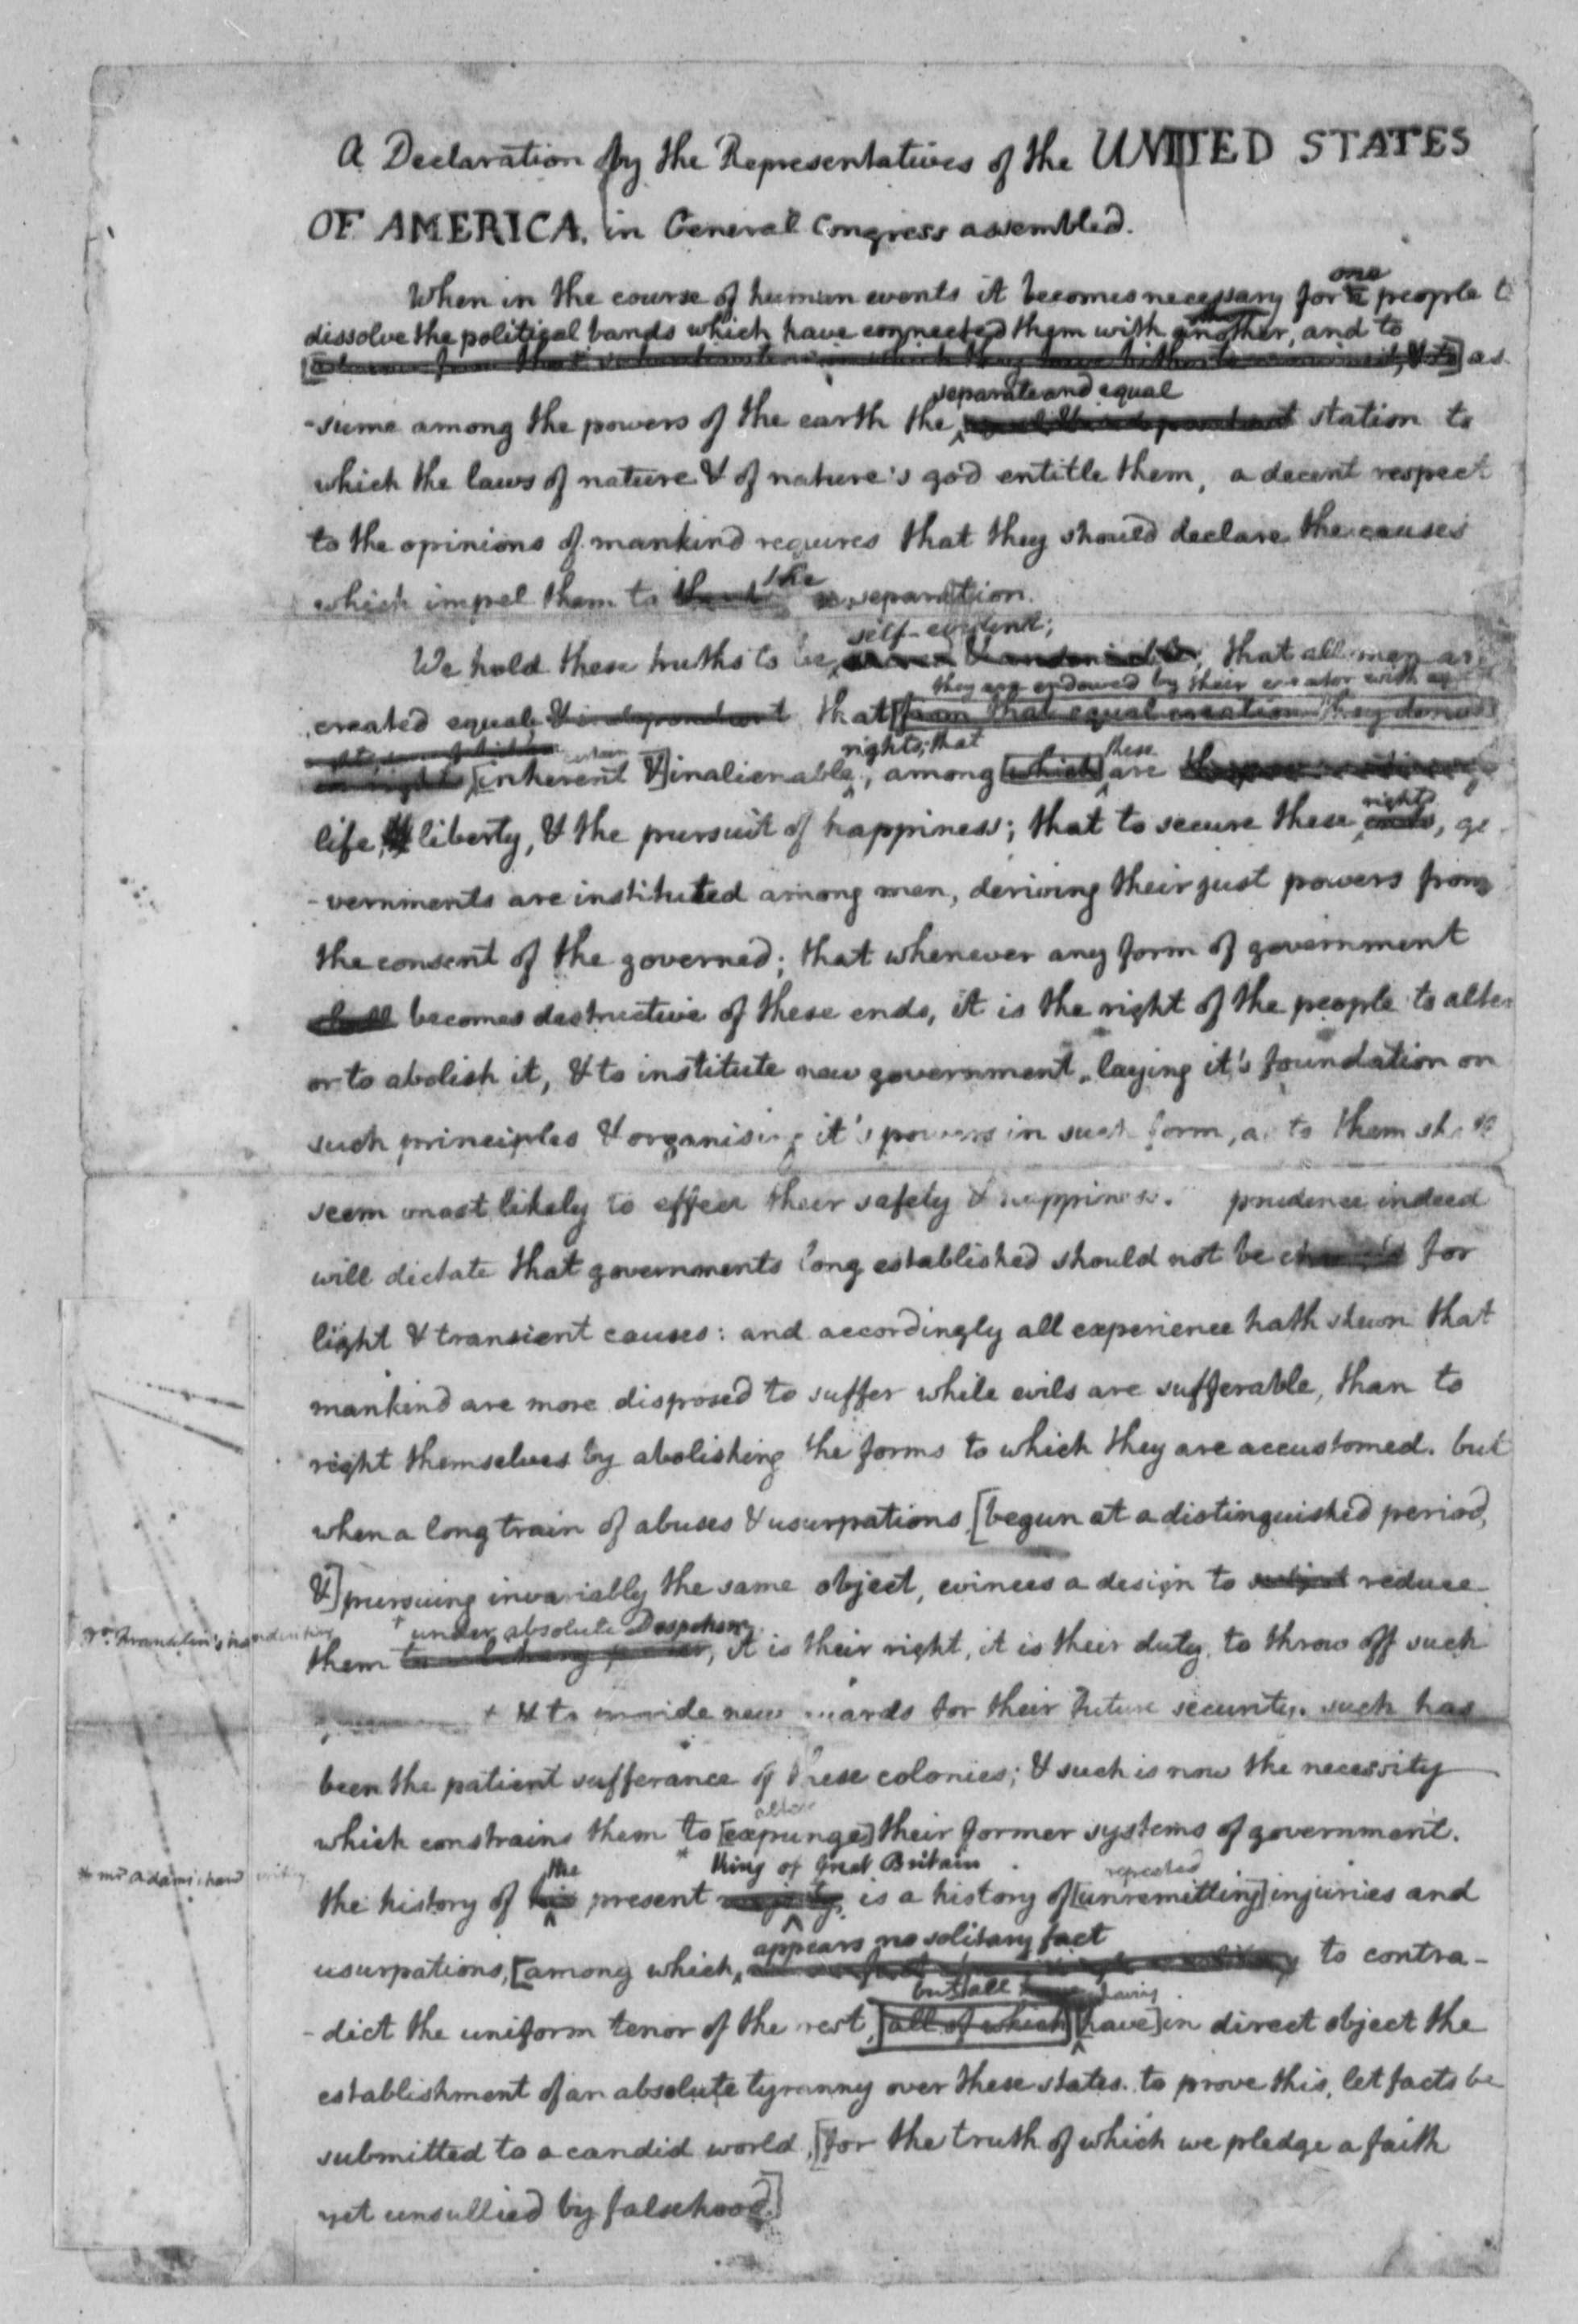 A Declaration by the Representatives of the UNITED STATES
OF AMERICA, in General Congress assembled.
When in the course of human events it becomes necessary for a one people t
dissolve the political bands which have connected them with another, and to
as
-sume among the powers of the earth the separate and equal station to
which the laws of nature & of nature's god entitle them, a decent respect
to the opinions of mankind requires that they should declare the causes
which impel them to the separation.
We hold these truths to be self-evident; that all men are
created equal & independent that they are endowed by their creator with [from that equal creation they derive
rights, some of which are certain
[inherent &] inalienable rights; that, among [which] these are
life, liberty, & the pursuit of happiness; that to secure these rights ends, go
-vernments are instituted among men, deriving their just powers from
the consent of the governed; that whenever any form of government
shall becomes destructive of these ends, it is the right of the people to alter
or to abolish it, & to institute new government, laying it's foundation on
such principles & organising it's powers in such form, as to them shall
seem most likely to effect their safety & happiness. prudence indeed
will dictate that governments long established should not be changed for
light & transient causes: and accordingly all experience hath shewn that
mankind are more disposed to suffer while evils are sufferable, than to
right themselves by abolishing the forms to which they are accustomed. but
when a long train of abuses & usurpations [begun at a distinguished period,
&] pursuing invariably the same object, evinces a design to subject reduce
Dr. Franklin's handwriting
* under absolute Despotism
them to arbitrary power, it is their right, it is their duty, to throw off such
& to provide new guards for their future security. such has
been the patient sufferance of these colonies; & such is now the necessity
which constrains them to [expunge] alter their former systems of government.
* mr Adams' hand writing
the history of his the present * king of Great Britain majesty, is a history of [unremitting] repeated injuries and
usurpations, [among which, appears no solitary fact to contra-
-dict the uniform tenor of the rest, but all [all of which] [have] having in direct object the
establishment of an absolute tyranny over these states. to prove this, let facts be
submitted to a candid world, [for the truth of which we pledge a faith
yet unsullied by falsehood.]